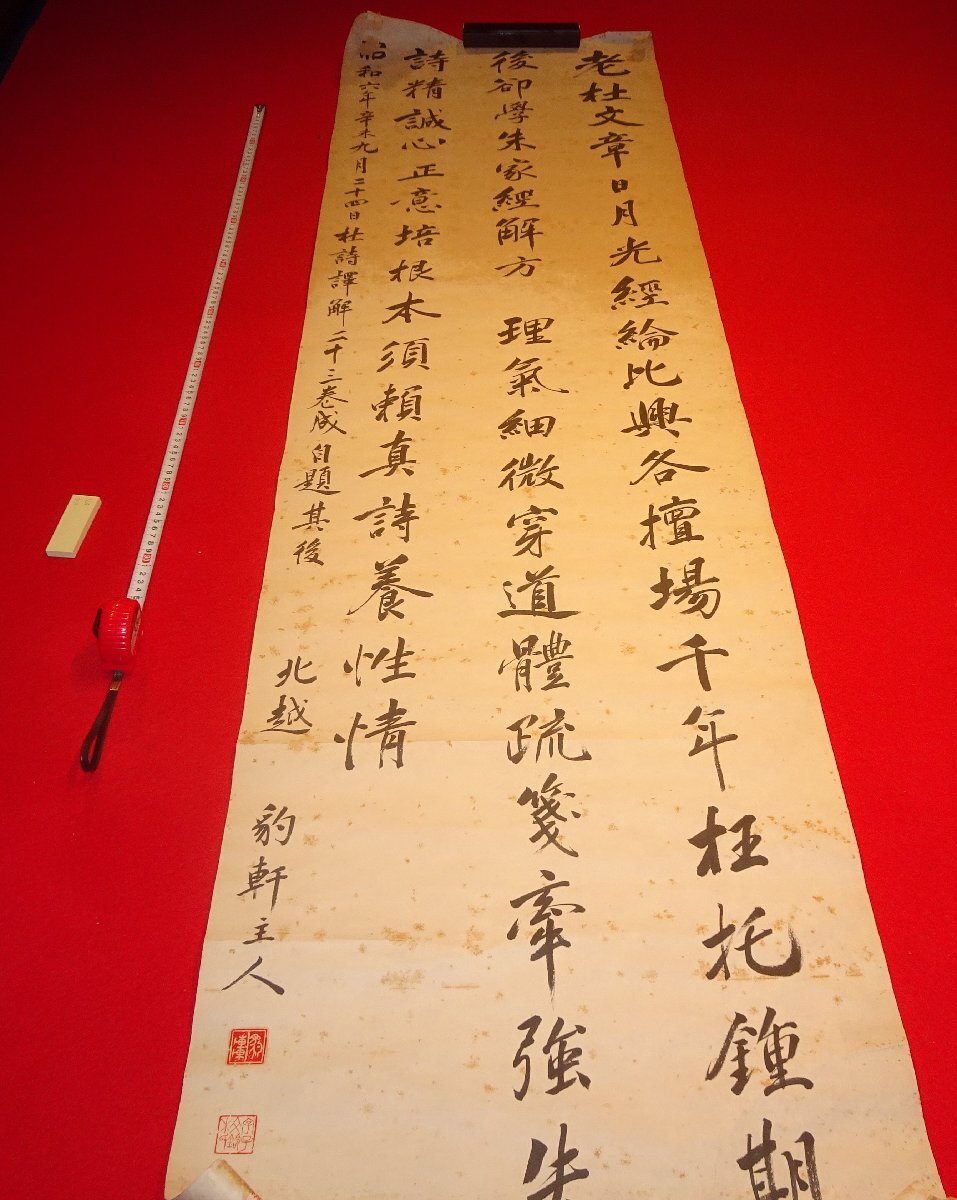 老杜文章日月光經綸比興各擅場千年枉托鍾期
後卻學朱家經解方 理氣細微穿道體疏箋牽強失
詩精誠心正意培根本須賴真詩養性情
昭和六年辛未九月二十四日杜詩譯解二十三卷成自題其後
北越 豹軒主人